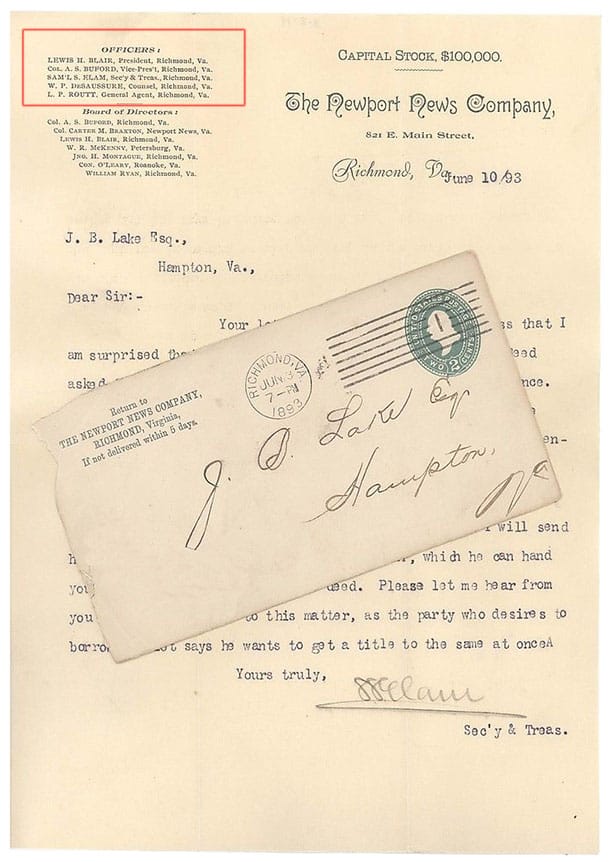 OFFICERS:
LEWIS H. BLAIR, President, Richmond, Va.
COL. A. S. BUFORD, Vice-Pres't, Richmond, Va.
SAM'L S. ELAM, Sec'y & Treas., Richmond, Va.
W. P. DESAUSSURE, Counsel, Richmond, Va.
L. P. ROUTT, General Agent, Richmond, Va.
Board of Directors:
COL. A. S. BUFORD, Richmond, Va.
COL. CARTER M. BRAXTON, Newport News, Va.
LEWIS H. BLAIR, Richmond, Va.
W. R. MCKENNY, Petersburg, Va.
JNO. H. MONTAGUE, Richmond, Va.
CON. O'LEARY, Roanoke, Va.
WILLIAM RYAN, Richmond, Va.
CAPITAL STOCK, $100,000.
The Newport News Company,
821 E. Main Street,
Richmond, Va. June 10/93
J. B. Lake Esq.,
Hampton, Va.,
Dear Sir:-
Your that I
am surprised
asked
RICHMOND, VA.
JUN
7-PM
1893
UNITED STATES POSTAGE
TWO 2 CENTS
1
Return to
THE NEWPORT NEWS COMPANY,
RICHMOND, Virginia,
If not delivered within 5 days.
J. B. Lake Esq
Hampton,
Va
en-
I will send
, which he can hand
deed. Please let me hear from
you to this matter, as the party who desires to
says he wants to get a title to the same at onceA
Yours truly,
SSElam
Sec'y & Treas.